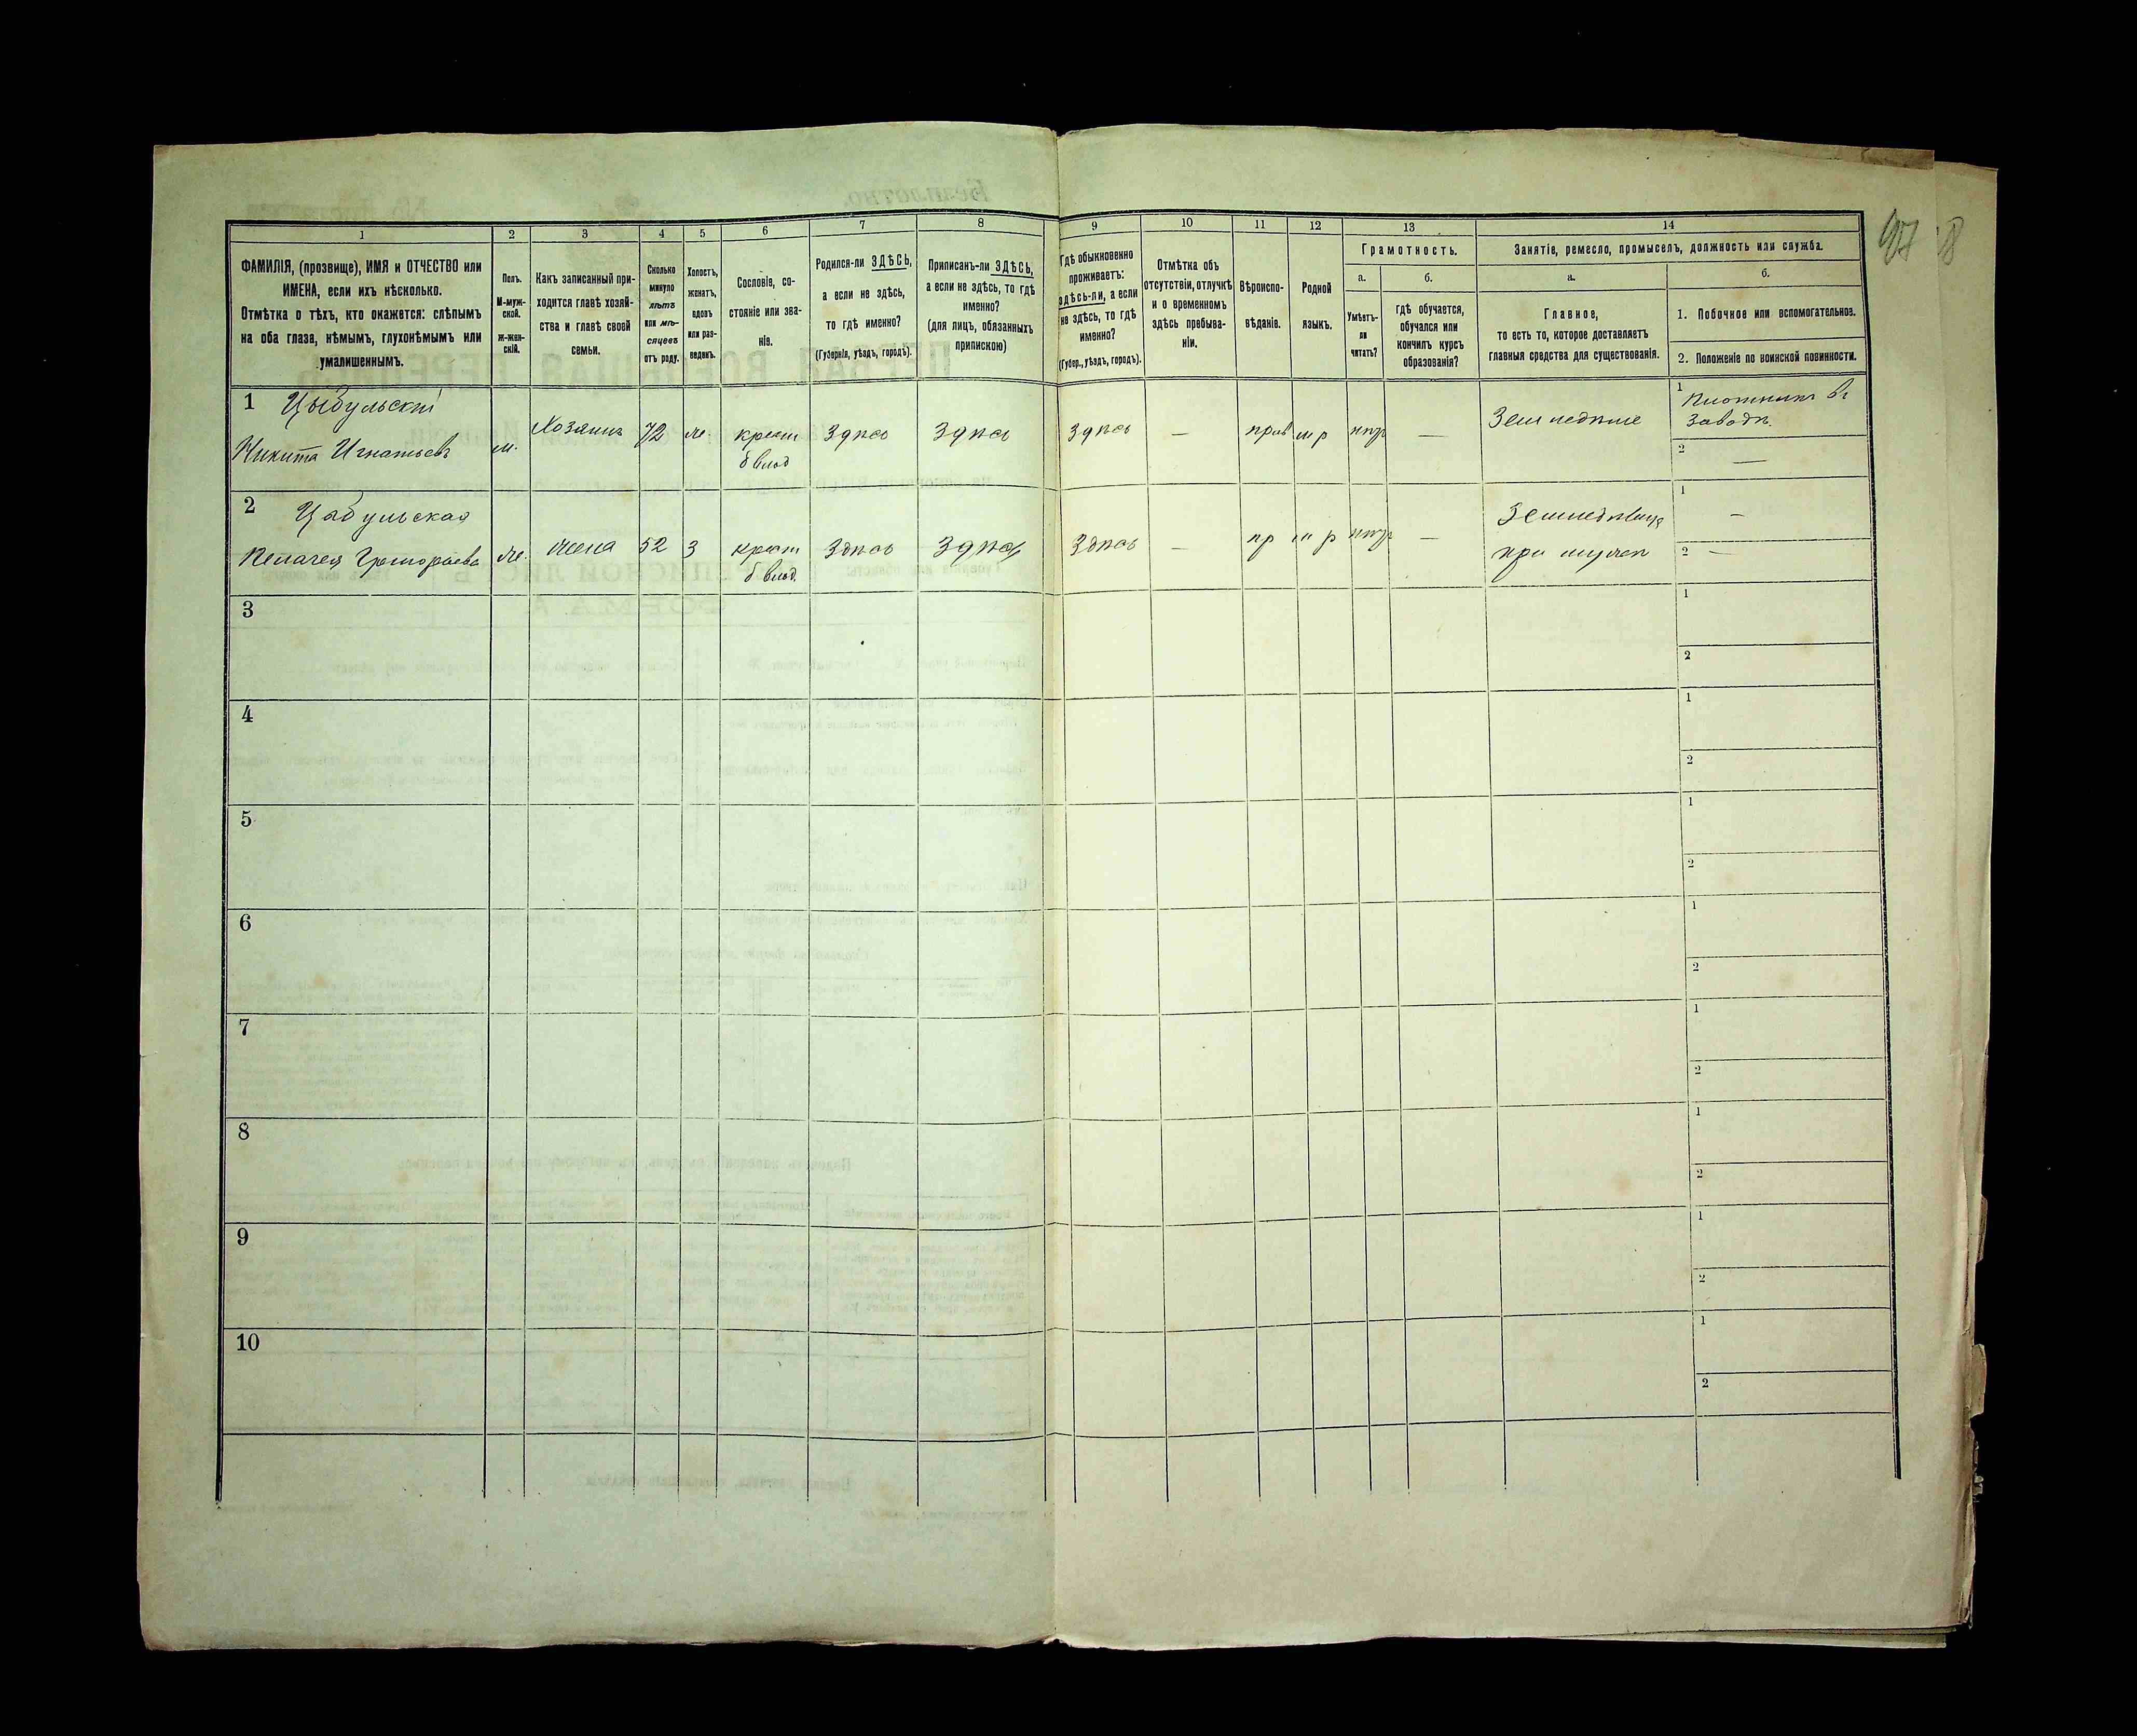 1 2 3 4 5 6 7 8 9 10 11 12 13 14
ФАМИЛІЯ, (прозвище), ИМЯ и ОТЧЕСТВО или
ИМЕНА, если ихъ нѣсколько.
Отмѣтка о тѣхъ, кто окажется: слѣпымъ
на оба глаза, нѣмымъ, глухонѣмымъ или
умалишеннымъ.
Полъ.
М-муж-
ской.
Ж-жен-
скій.
Какъ записанный при-
ходится главѣ хозяй-
ства и главѣ своей
семьи.
Сколько
минуло
лѣтъ
или мѣ-
сяцевъ
отъ роду.
Холостъ,
женатъ,
вдовъ
или раз-
веденъ.
Сословіе, со-
стояніе или зва-
ніе.
Родился-ли ЗДѢСЬ,
а если не здѣсь,
то гдѣ именно?
(Губернія, уѣздъ, городъ).
Приписанъ-ли ЗДѢСЬ,
а если не здѣсь, то гдѣ
именно?
(для лицъ, обязанныхъ
припискою)
Гдѣ обыкновенно
проживаетъ:
здѣсь-ли, а если
не здѣсь, то гдѣ
именно?
(Губер., уѣздъ, городъ).
Отмѣтка объ
отсутствіи, отлучкѣ
и о временномъ
здѣсь пребыва-
ніи.
Вѣроиспо-
вѣданіе.
Родной
языкъ.
Грамотность.
а.
Умѣетъ-
ли
читать?
б.
гдѣ обучается,
обучался или
кончилъ курсъ
образованія?
Занятіе, ремесло, промыселъ, должность или служба.
а.
Главное,
то есть то, которое доставляетъ
главныя средства для существованія.
б.
1. Побочное или вспомогательное.
2. Положеніе по воинской повинности.
1 Цыбульскій
Никита Игнатьевъ
м. Хозяинъ 72 ж крест
б влад
Здѣсь Здѣсь Здѣсь — прав м р нѣтъ — Земледѣліе
1 Плотникъ въ
Заводѣ.
2 —
2 Цыбульская
Пелагея Григорьева
ж. жена 52 З крест
б влад.
Здѣсь Здѣсь Здѣсь — пр м р нѣтъ —
при мужѣ
1 —
2 —
3 1
2
4 1
2
5 1
2
6 1
2
7 1
2
8 1
2
9 1
2
10 1
2